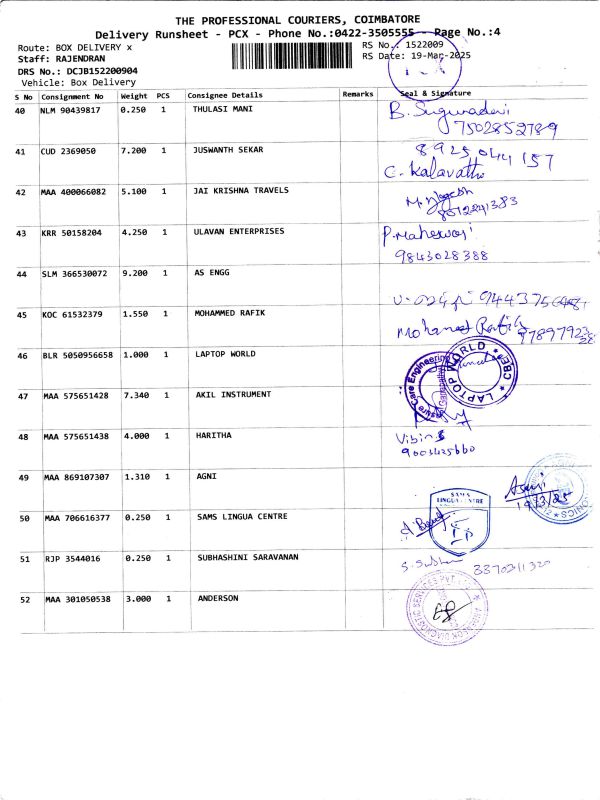 THE PROFESSIONAL COURIERS, COIMBATORE
Delivery Runsheet - PCX - Phone No.:0422-3505555 Page No.:4
Route: BOX DELIVERY x
RS No.: 1522009
Staff: RAJENDRAN
RS Date: 19-Mar-2025
DRS No.: DCJB152200904
Vehicle: Box Delivery
S No Consignment No Weight PCS Consignee Details Remarks Seal & Signature
40 NLM 90439817 0.250 1 THULASI MANI
7502852789
41 CUD 2369050 7.200 1 JUSWANTH SEKAR
8925044157
C. Kalavathi
42 MAA 400066082 5.100 1 JAI KRISHNA TRAVELS
43 KRR 50158204 4.250 1 ULAVAN ENTERPRISES P.Maheswari
9843028388
44 SLM 366530072 9.200 1 AS ENGG
45 KOC 61532379 1.550 1 MOHAMMED RAFIK
46 BLR 5050956658 1.000 1 LAPTOP WORLD
LAPTOP WORLD CBE
47 MAA 575651428 7.340 1 AKIL INSTRUMENT
48 MAA 575651438 4.000 1 HARITHA
9003425660
49 MAA 869107307 1.310 1 AGNI
19/3/25
50 MAA 706616377 0.250 1 SAMS LINGUA CENTRE
SAMS
LINGUA CENTRE
51 RJP 3544016 0.250 1 SUBHASHINI SARAVANAN
52 MAA 301050538 3.000 1 ANDERSON